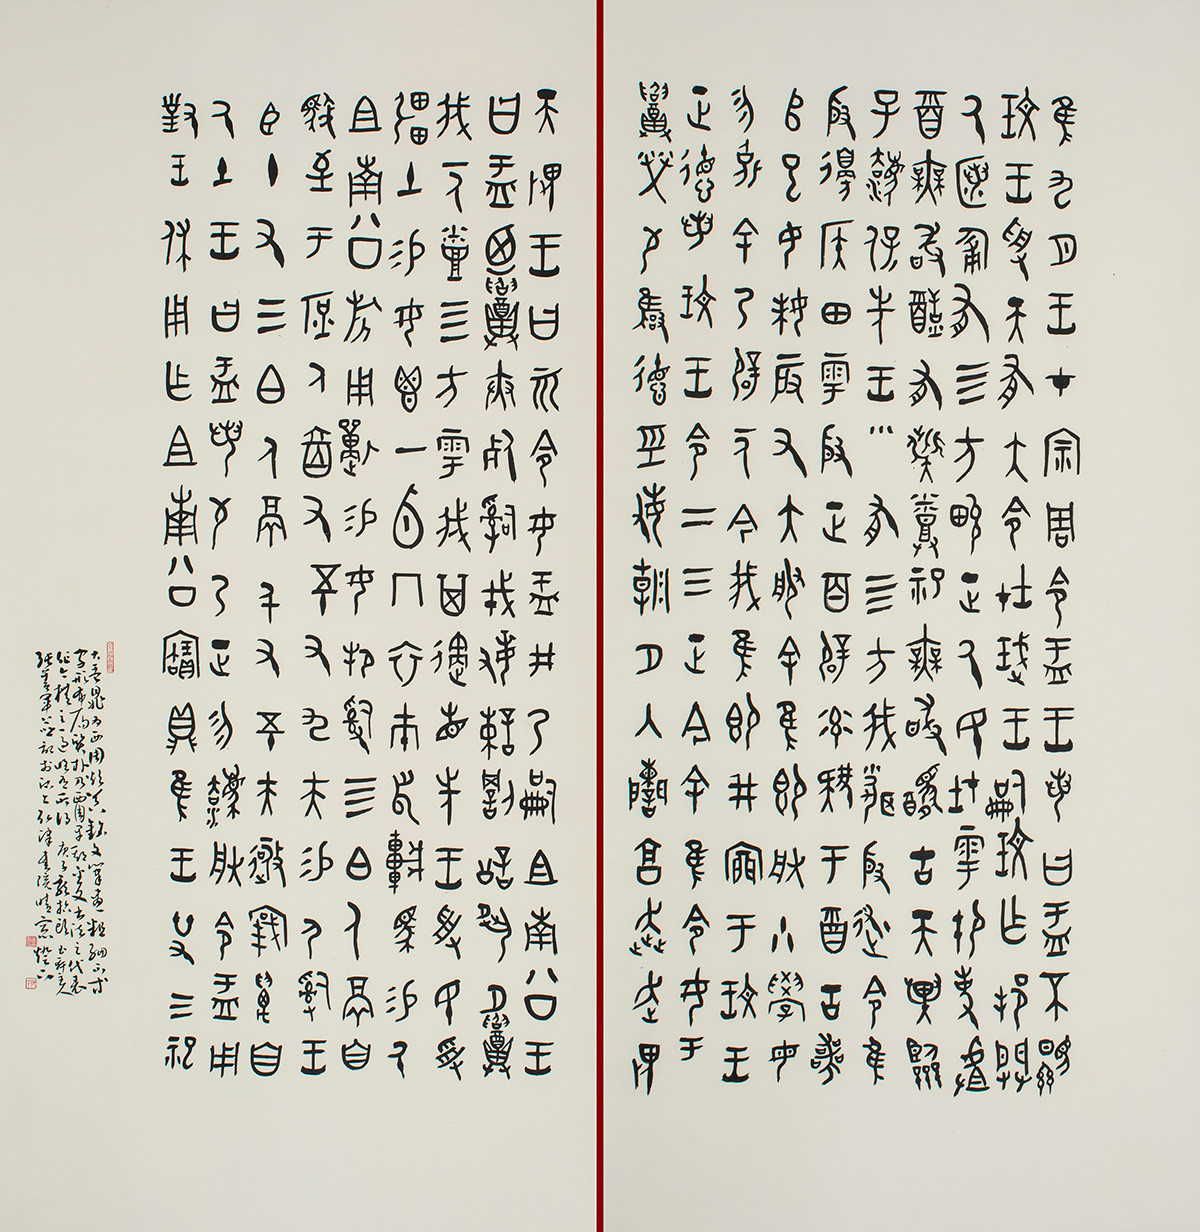 隹九月王才宗周令盂王若曰盂不顯
玟王受天有大令在珷王嗣玟乍邦闢
厥匿匍有四方畯正厥民在雩御事䖒
酉無敢酖有髭烝祀無敢擾古天異臨
子灋保先王有四方我聞殷述令隹
殷邊侯田雩殷正百辟率肄于酉古喪
𠂤巳女妹辰又大服余隹即朕小學女
勿克余乃辟一人今我隹即井𠭯于玟王
正德若玟王令二三正今余隹令女盂
召榮敬雝德巠敏朝夕入讕享奔走畏
天畏王曰而令女盂井乃嗣且南公王
曰盂乃召夾死司戎敏諫罰訟夙夕召
我一人烝四方雩我其遹省先王受民受
疆土易女鬯一卣冂衣巿舄車馬易乃
且南公旂用狩易女邦司四白人鬲自
馭至于庶人六百又五十又九夫易尸司王
臣十又三白人鬲千又五十夫遷自
厥土王曰盂若敬乃正勿灋朕令盂用
對王休用乍且南公寶鼎隹王廿又三祀